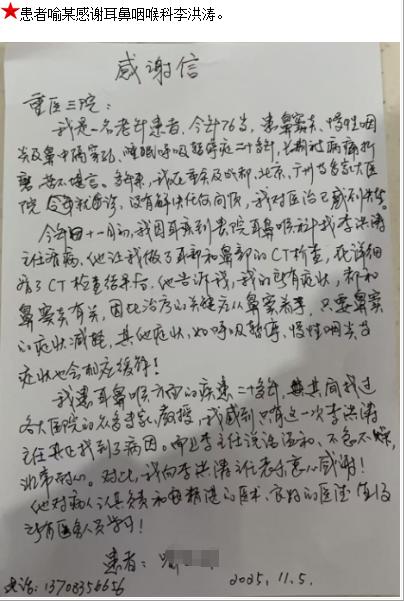 ★患者喻某感谢耳鼻咽喉科李洪涛。
感谢信
重医三院：
我是一名老年患者，今年76岁，患鼻窦炎、慢性咽
炎及鼻中隔穿孔、睡眠呼吸暂停症二十多年，长期被病痛折
磨，苦不堪言。多年来，我在重庆及成都、北京、广州等各家大医
院 就诊，没有解决任何问题，我对医治已感到失望。
今年 十一月初，我因耳痰到贵院耳鼻喉科找李洪涛
主任看病，他让我做了耳部和鼻部的CT检查，在详细
了CT检查结果后，他告诉我，我的所有症状，都和
鼻窦炎有关，因此治疗的关键应从鼻窦着手，只要鼻窦
的症状减轻，其他症状，如呼吸暂停、慢性咽炎等
症状也会相应缓解！
我患耳鼻喉方面的疾患二十多年，其间找过
各大医院的众多专家、教授，我感到只有这一次李洪涛
主任真正找到了病因。而且李主任说话温和、不急不燥，
非常耐心。对此，我向李洪涛主任表示衷心感谢！
他对病人认真负责和 精湛的医术、良好的医德 值得
所有医务人员学习！
患者：喻
电话：13708356656 2025.11.5.